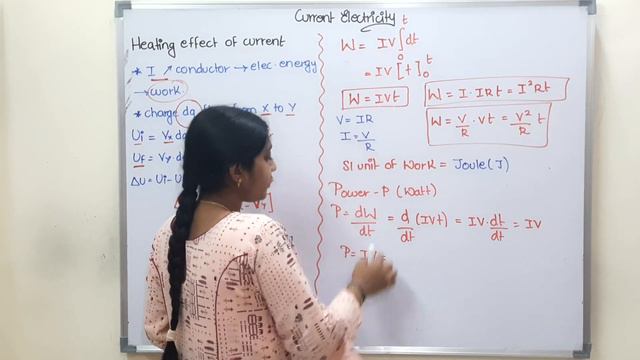 Current Electricity
Heating effect of current
* I ↗ conductor → elec. energy
→ work.
* charge dq from x to y
Ui = Vx dq
Uf = Vy.
ΔU = Ui - U
W = IV ∫₀ᵗ dt
= IV [t]₀ᵗ
W = IVt
W = I · IRt = I²Rt
V = IR
I = V/R
W = V/R · Vt = V²/R t
SI unit of Work = Joule (J)
Power - P (Watt)
P = dW/dt = d/dt (IVt) = IV · dt/dt = IV
P = I